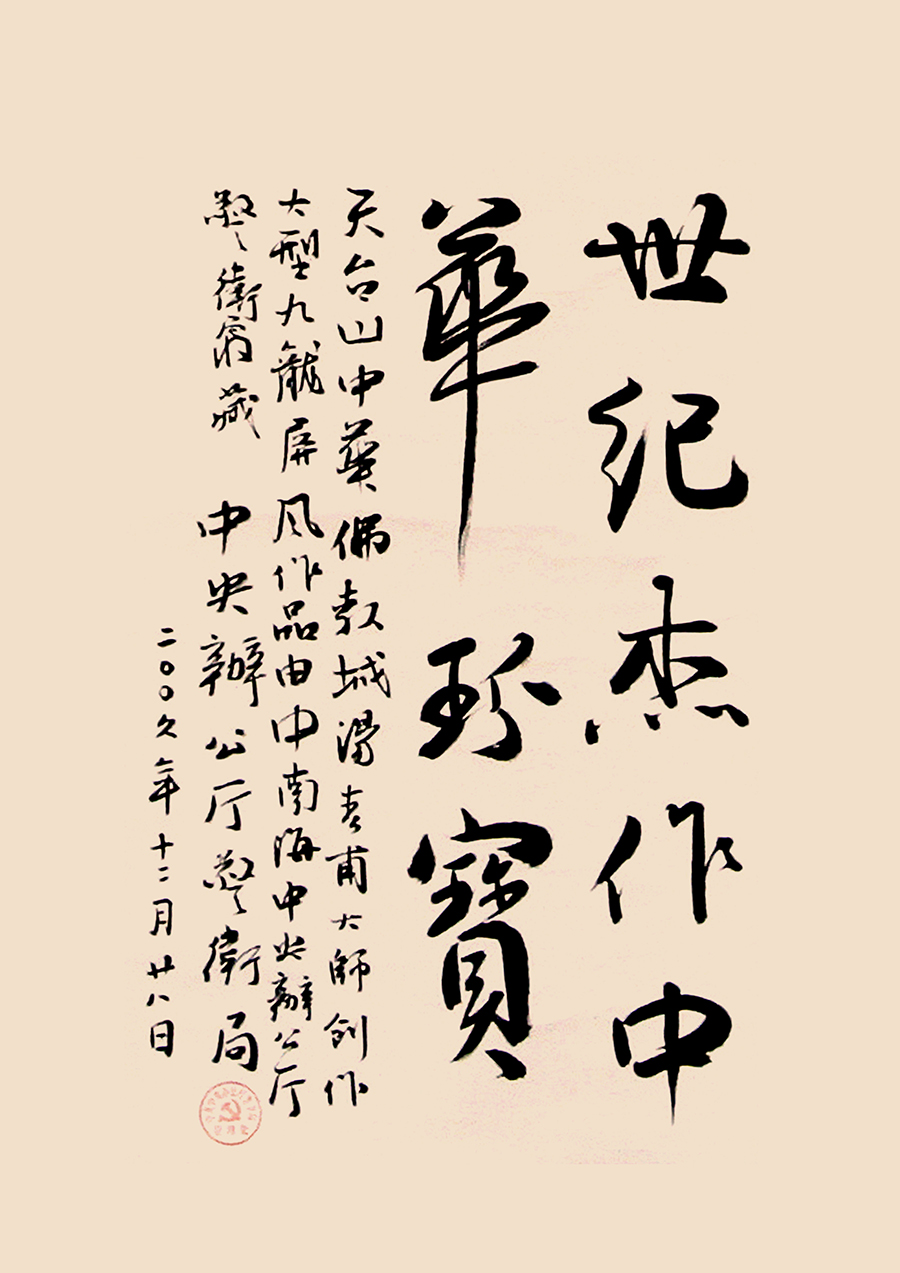 世纪杰作中
華珍寶
天台山中華佛教城湯春甫大師創作
大型九龍屏风作品由中南海中央辦公厅
警衛局藏 中央辦公厅警衛局
二〇〇久年十二月廿八日